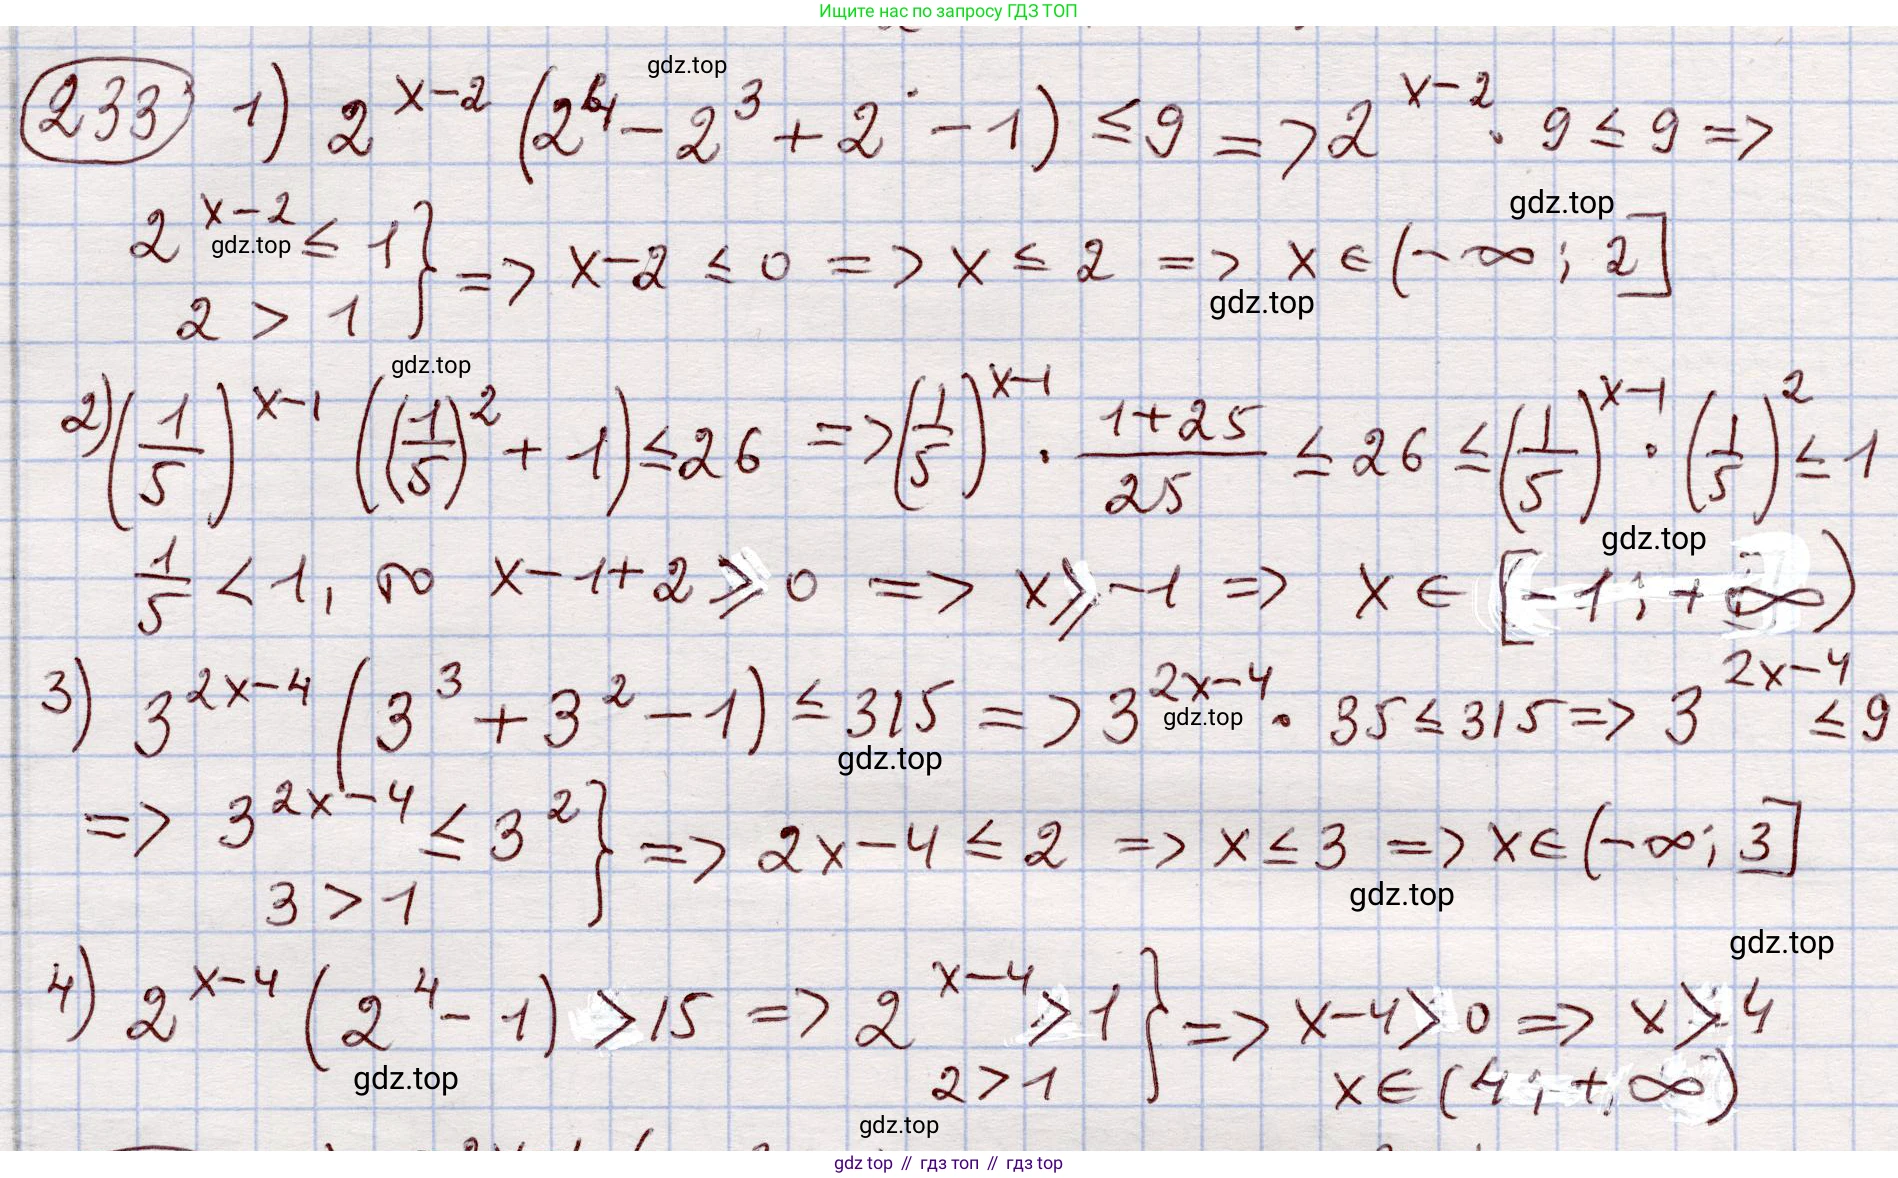 Ищите нас по запросу ГДЗ ТОП
gdz.top
233 1) 2^(x-2) (2^4 - 2^3 + 2 - 1) ≤ 9 => 2^(x-2) · 9 ≤ 9 =>
gdz.top
2^(x-2) ≤ 1 } => x-2 ≤ 0 => x ≤ 2 => x ∈ (-∞; 2]
gdz.top
gdz.top
2 > 1
gdz.top
2) (1/5)^(x-1) ((1/5)^2 + 1) ≤ 26 => (1/5)^(x-1) · (1+25)/25 ≤ 26 ≤ (1/5)^(x-1) · (1/5)^2 ≤ 1
gdz.top
1/5 < 1, то x-1+2 ≥ 0 => x ≥ -1 => x ∈ [-1; +∞)
3) 3^(2x-4) (3^3 + 3^2 - 1) ≤ 315 => 3^(2x-4) · 35 ≤ 315 => 3^(2x-4) ≤ 9
gdz.top
gdz.top
=> 3^(2x-4) ≤ 3^2 } => 2x-4 ≤ 2 => x ≤ 3 => x ∈ (-∞; 3]
3 > 1
gdz.top
gdz.top
4) 2^(x-4) (2^4 - 1) > 15 => 2^(x-4) > 1 } => x-4 > 0 => x > 4
gdz.top
2 > 1
x ∈ (4; +∞)
gdz.top
gdz top // гдз топ // гдз top